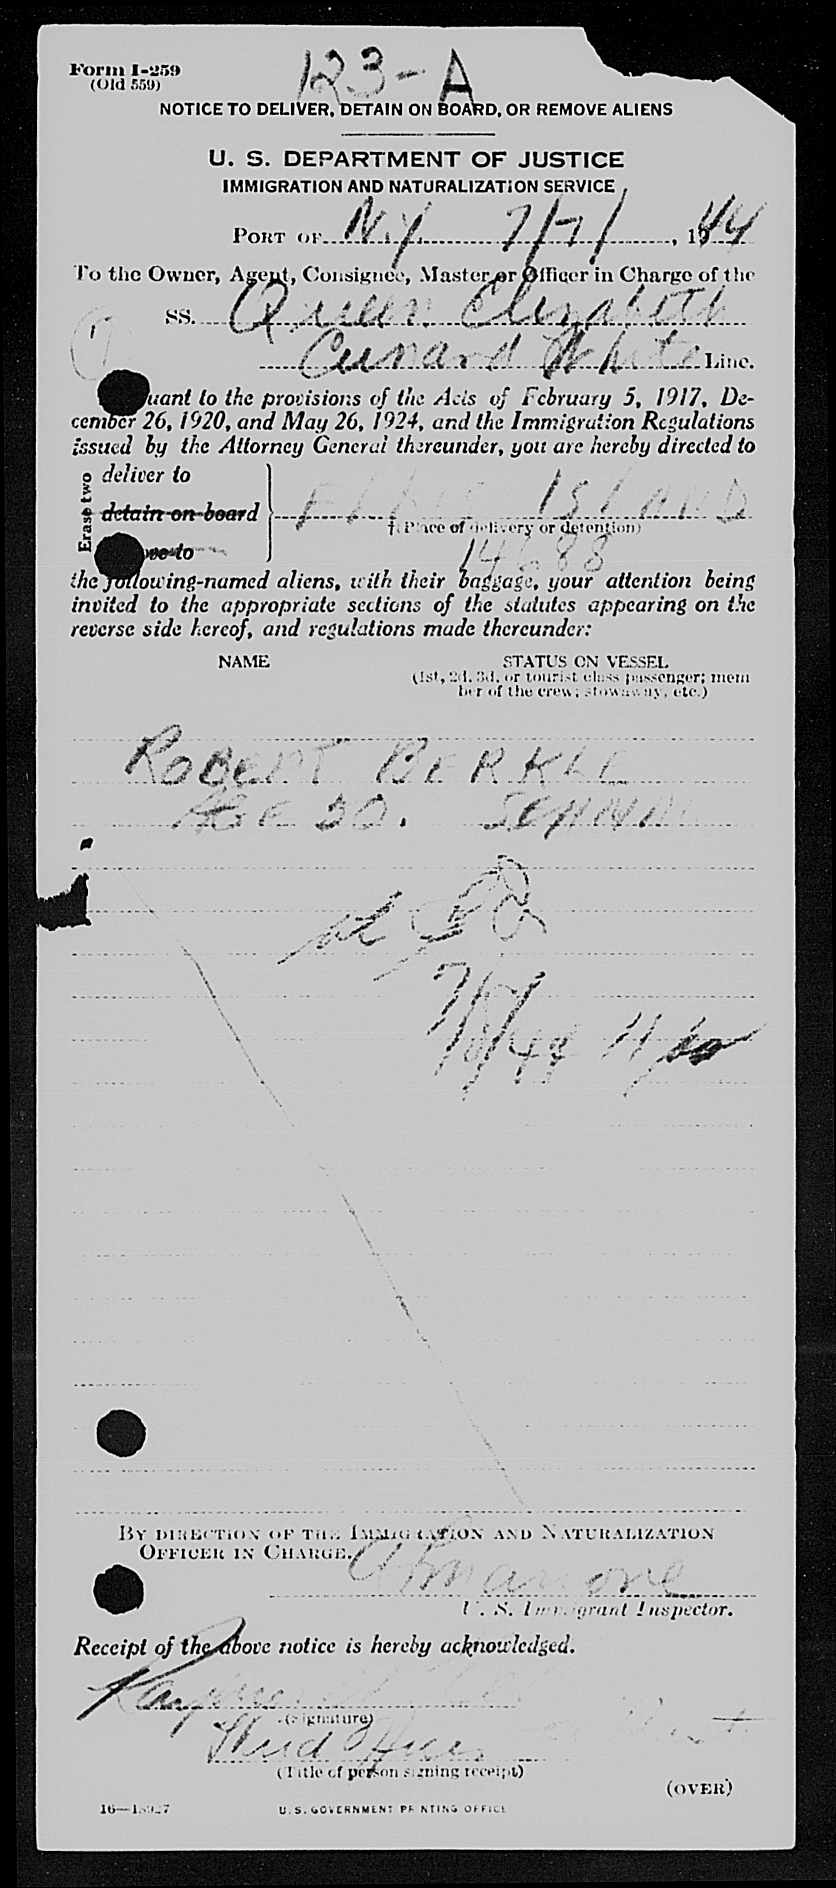 Form I-259
(Old 559)
123-A
NOTICE TO DELIVER, DETAIN ON BOARD, OR REMOVE ALIENS
U. S. DEPARTMENT OF JUSTICE
IMMIGRATION AND NATURALIZATION SERVICE
PORT OF N.Y. 7/7/, 1944
To the Owner, Agent, Consignee, Master or Officer in Charge of the
SS. Queen Elizabeth
Cunard White Line.
uant to the provisions of the Acts of February 5, 1917, De-
cember 26, 1920, and May 26, 1924, and the Immigration Regulations
issued by the Attorney General thereunder, you are hereby directed to
Erase two
deliver to
detain on board
ELLIS ISLAND
ve to
(Place of delivery or detention)
the following-named aliens, with their baggage, your attention being
invited to the appropriate sections of the statutes appearing on the
reverse side hereof, and regulations made thereunder:
NAME STATUS ON VESSEL
(1st, 2d, 3d, or tourist class passenger; mem
ber of the crew; stowaway, etc.)
ROBERT
AGE 20.
BY DIRECTION OF THE IMMIGRATION AND NATURALIZATION
OFFICER IN CHARGE.
U. S. Immigrant Inspector.
Receipt of the above notice is hereby acknowledged.
(Signature)
(Title of person signing receipt)
(OVER)
U. S. GOVERNMENT PRINTING OFFICE